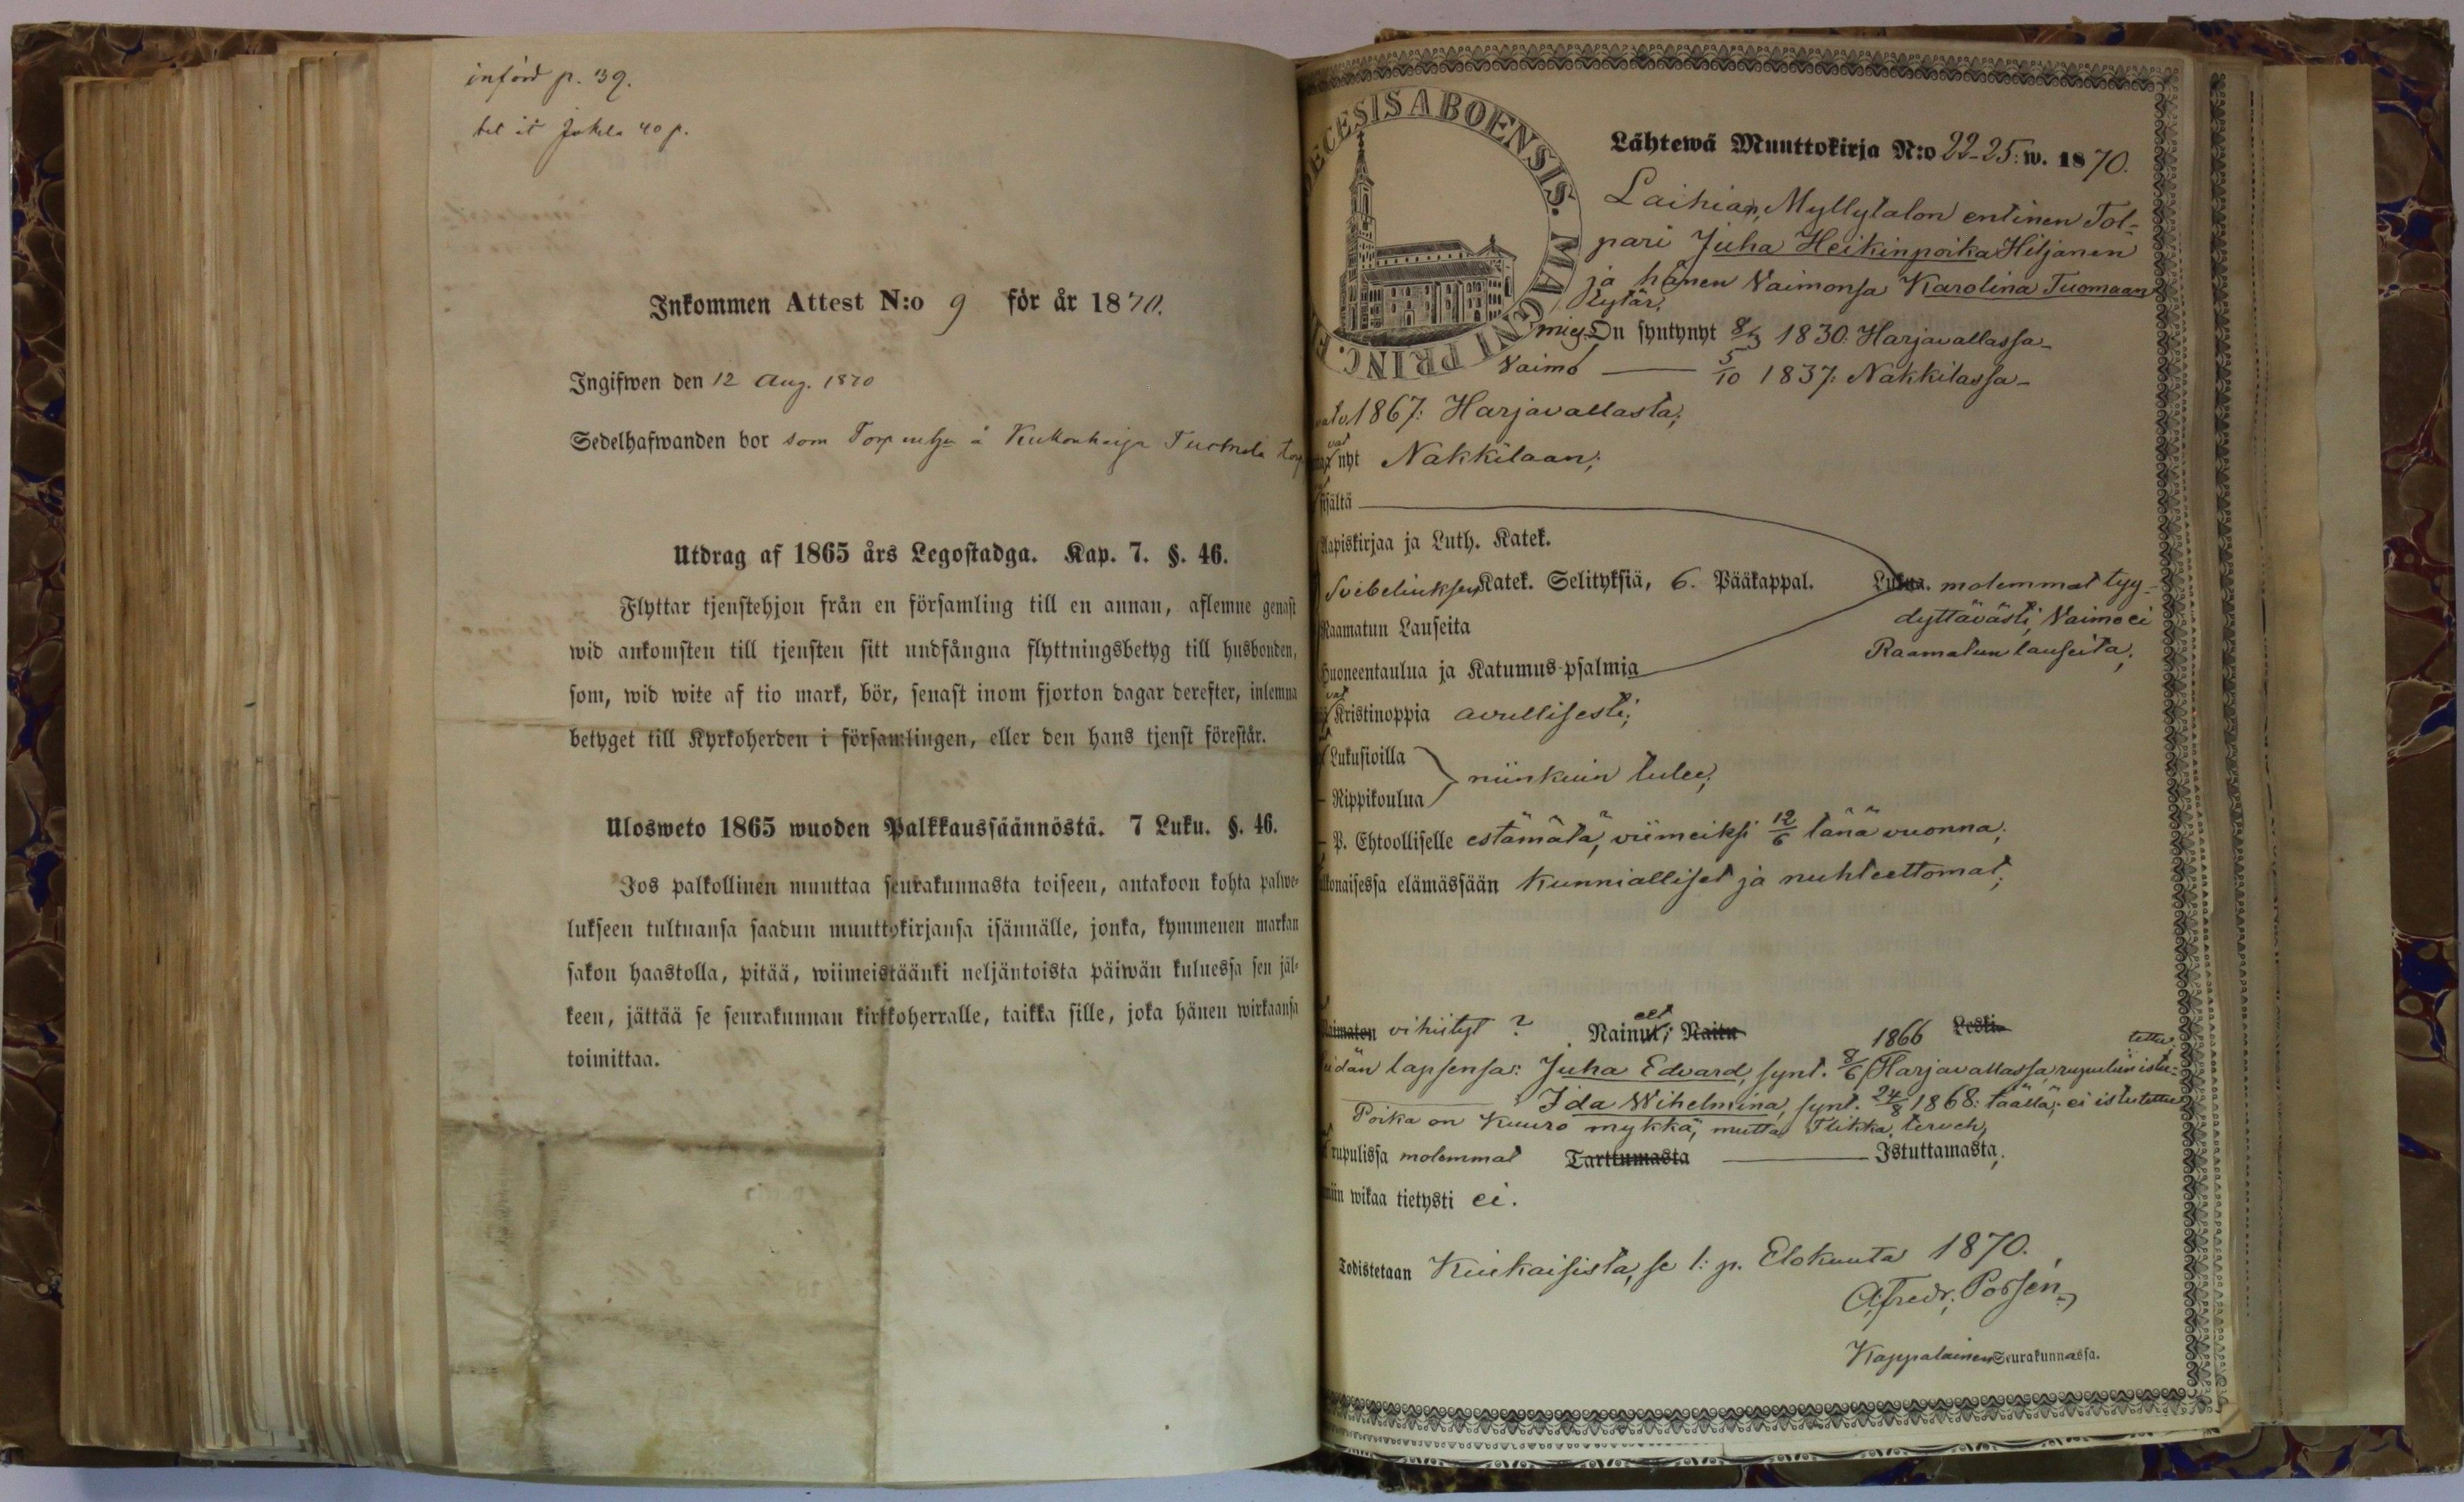 införd p. 39.
bet it Jokela 40 p.
Inkommen Attest N:o 9 för år 1870.
Ingifwen den 12 Aug. 1870
Sedelhafwanden bor som Torp å Tuomola torp
Utdrag af 1865 års Legostadga. Kap. 7. §. 46.
Flyttar tjenstehjon från en församling till en annan, aflemne genast
wid ankomsten till tjensten sitt undfångna flyttningsbetyg till husbonden,
som, wid wite af tio mark, bör, senast inom fjorton dagar derefter, inlemna
betyget till Kyrkoherden i församlingen, eller den hans tjenst förestår.
Ulosweto 1865 wuoden Palkkaussäännöstä. 7 Luku. §. 46.
Jos palkollinen muuttaa seurakunnasta toiseen, antakoon kohta palwe-
lukseen tultuansa saadun muuttokirjansa isännälle, jonka, kymmenen markan
sakon haastolla, pitää, wiimeistäänki neljäntoista päiwän kuluessa sen jäl-
keen, jättää se seurakunnan kirkkoherralle, taikka sille, joka hänen wirkaansa
toimittaa.
DIECESIS ABOENSIS. MAGNI PRINC. F
Lähtewä Muuttokirja N:o 22-25: w. 1870.
Laihian, Myllytalon entinen Tol-
pari Juha Heikinpoika Hiljanen
ja hänen Vaimonsa Karolina Tuomaan
tytär,
mies On syntynyt 8/3 1830: Harjavallassa
Vaimo — 5/10 1837: Nakkilassa
1867: Harjavallasta,
vat
nyt Nakkilaan;
sijältä
Aapiskirjaa ja Luth. Katek.
Svebeliuksen Katek. Selityksiä, 6. Pääkappal. Lukua. molemmat tyy-
dyttävästi, Vaimo ei
Raamatun Lauseita
Raamatun lauseita;
Huoneentaulua ja Katumus-psalmia
vat
Kristinoppia avullisesti;
Lukusioilla
niinkuin tulee;
Rippikoulua
P. Ehtoolliselle estämätä, viimeiksi 12/6 tänä vuonna;
ulkonaisessa elämässään kunnialliset ja nuhteettomat;
Naimaton vihityt ? Nainut; Naitu 1866 Leski
tettu
lapsensa: Juha Edvard, synt. 8/6 Harjavallassa, rupuliin istu-
Ida Wihelmina, synt. 24/8 1868: täällä; ei istutettu
Poika on kuuro mykkä, mutta Flikka terveh,
rupulissa molemmat Tarttumasta — Istuttamasta,
wikaa tietysti ei.
Todistetaan Kiukaisista, se 1: p. Elokuuta 1870.
A. Fredr. Forssén
Kappalainen Seurakunnassa.